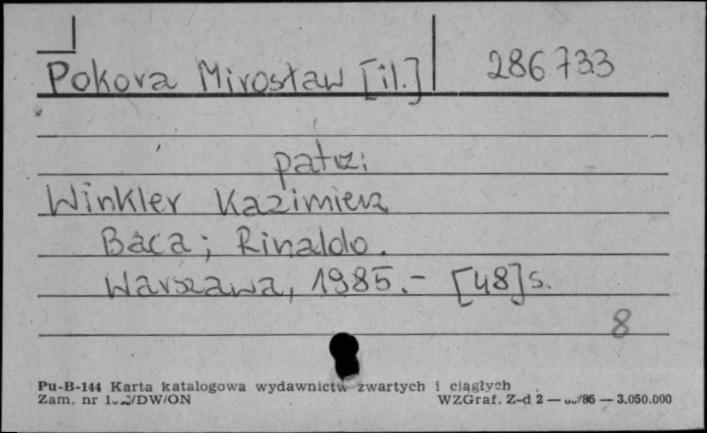 Pokora Mirosław [il.] 286 733
patrz:
Winkler Kazimierz
Baca; Rinaldo.
Warszawa, 1985.- [48]s.
8
Pu-B-144 Karta katalogowa wydawnictw zwartych i ciągłych
Zam. nr /DW/ON WZGraf. Z-d 2 — /86 — 3.050.000